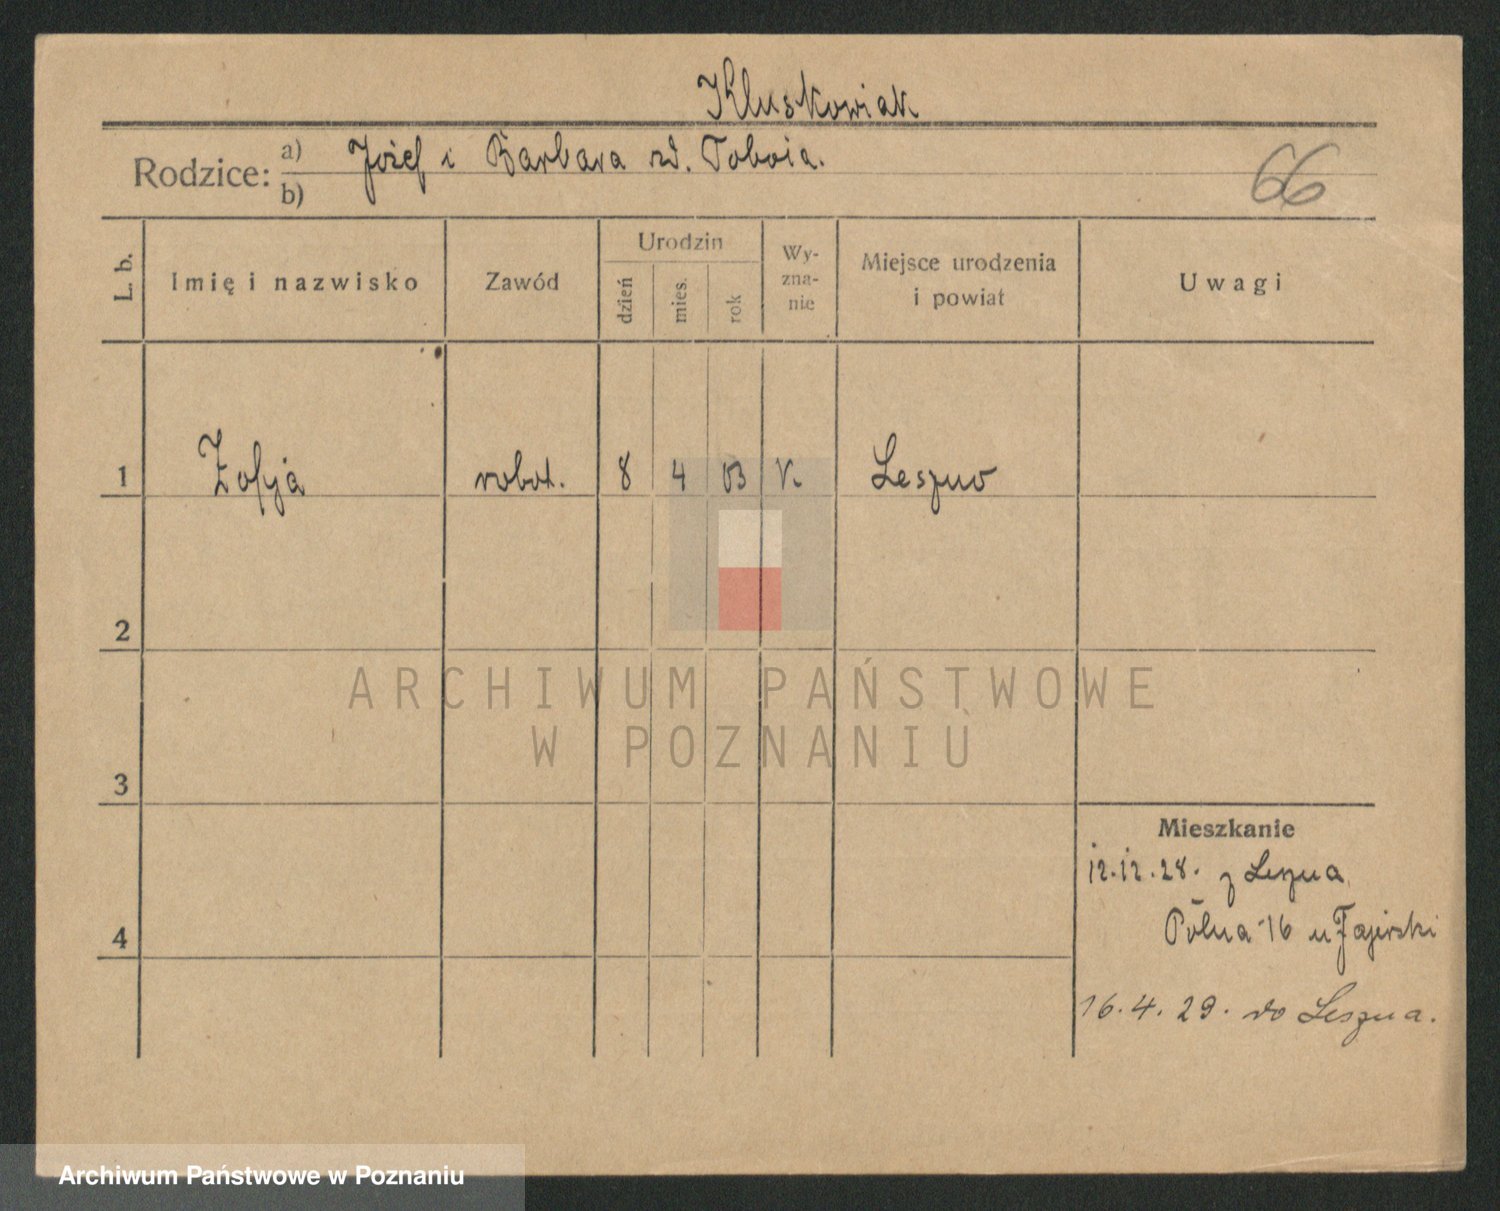 Kluskowiak
Rodzice: a) Józef i Barbara zd. Toboia.
b)
66
L. b.
Imię i nazwisko
Zawód
Urodzin
dzień
mies.
rok
Wy-
zna-
nie
Miejsce urodzenia
i powiat
Uwagi
1 Zofja robot. 8 4 03 r. Leszno
2
3
4
Mieszkanie
12.12.28. z Leszna
Polna 16 u
16.4.29. do Leszna.
ARCHIWUM PAŃSTWOWE
W POZNANIU
Archiwum Państwowe w Poznaniu